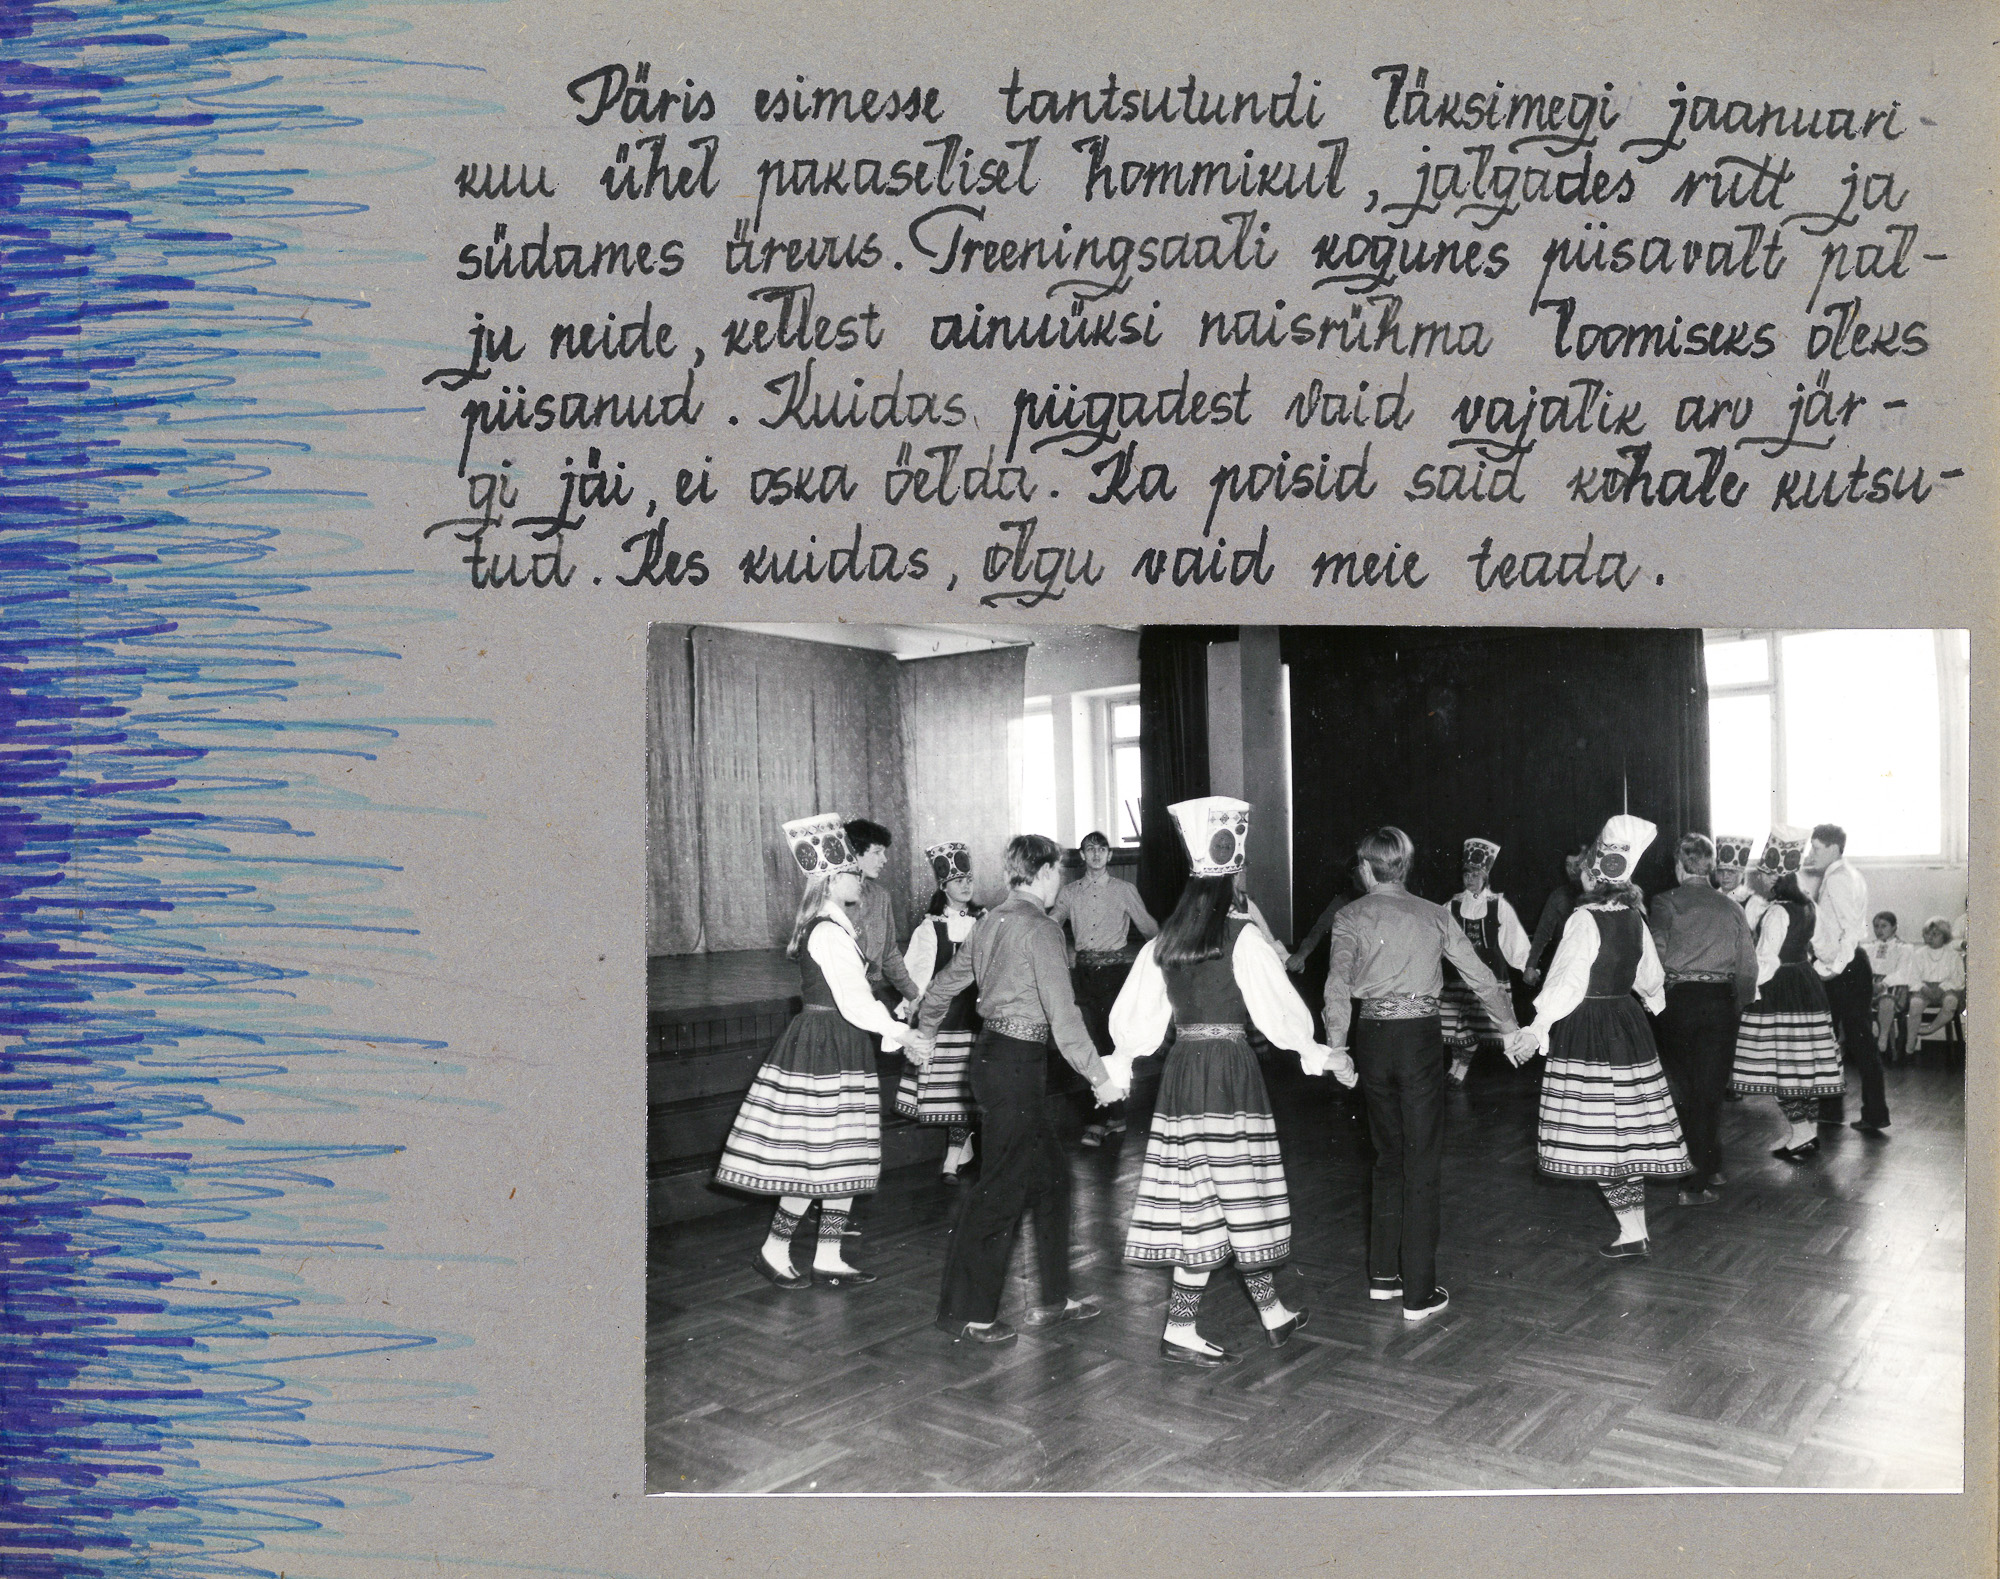 Päris esimesse tantsutundi läksimegi jaanuari-
kuu ühel pakaselisel hommikul, jalgades rutt ja
südames ärevus. Treeningsaali kogunes piisavalt pal-
ju neide, kellest ainuüksi naisrühma loomiseks oleks
piisanud. Kuidas piigadest vaid vajalik arv jär-
gi jäi, ei oska öelda. Ka poisid said kohale kutsu-
tud. Kes kuidas, olgu vaid meie teada.